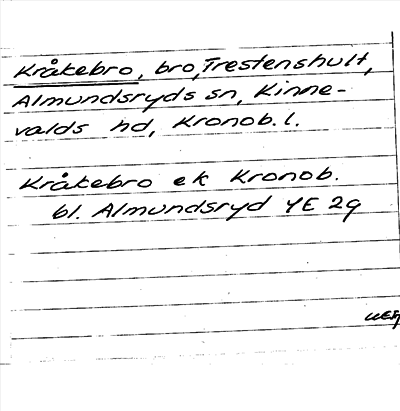 Kråkebro, bro, Trestenshult,
Almundsryds sn, Kinne-
valds hd, Kronob. l.
Kråkebro ek Kronob.
bl. Almundsryd YE 2g